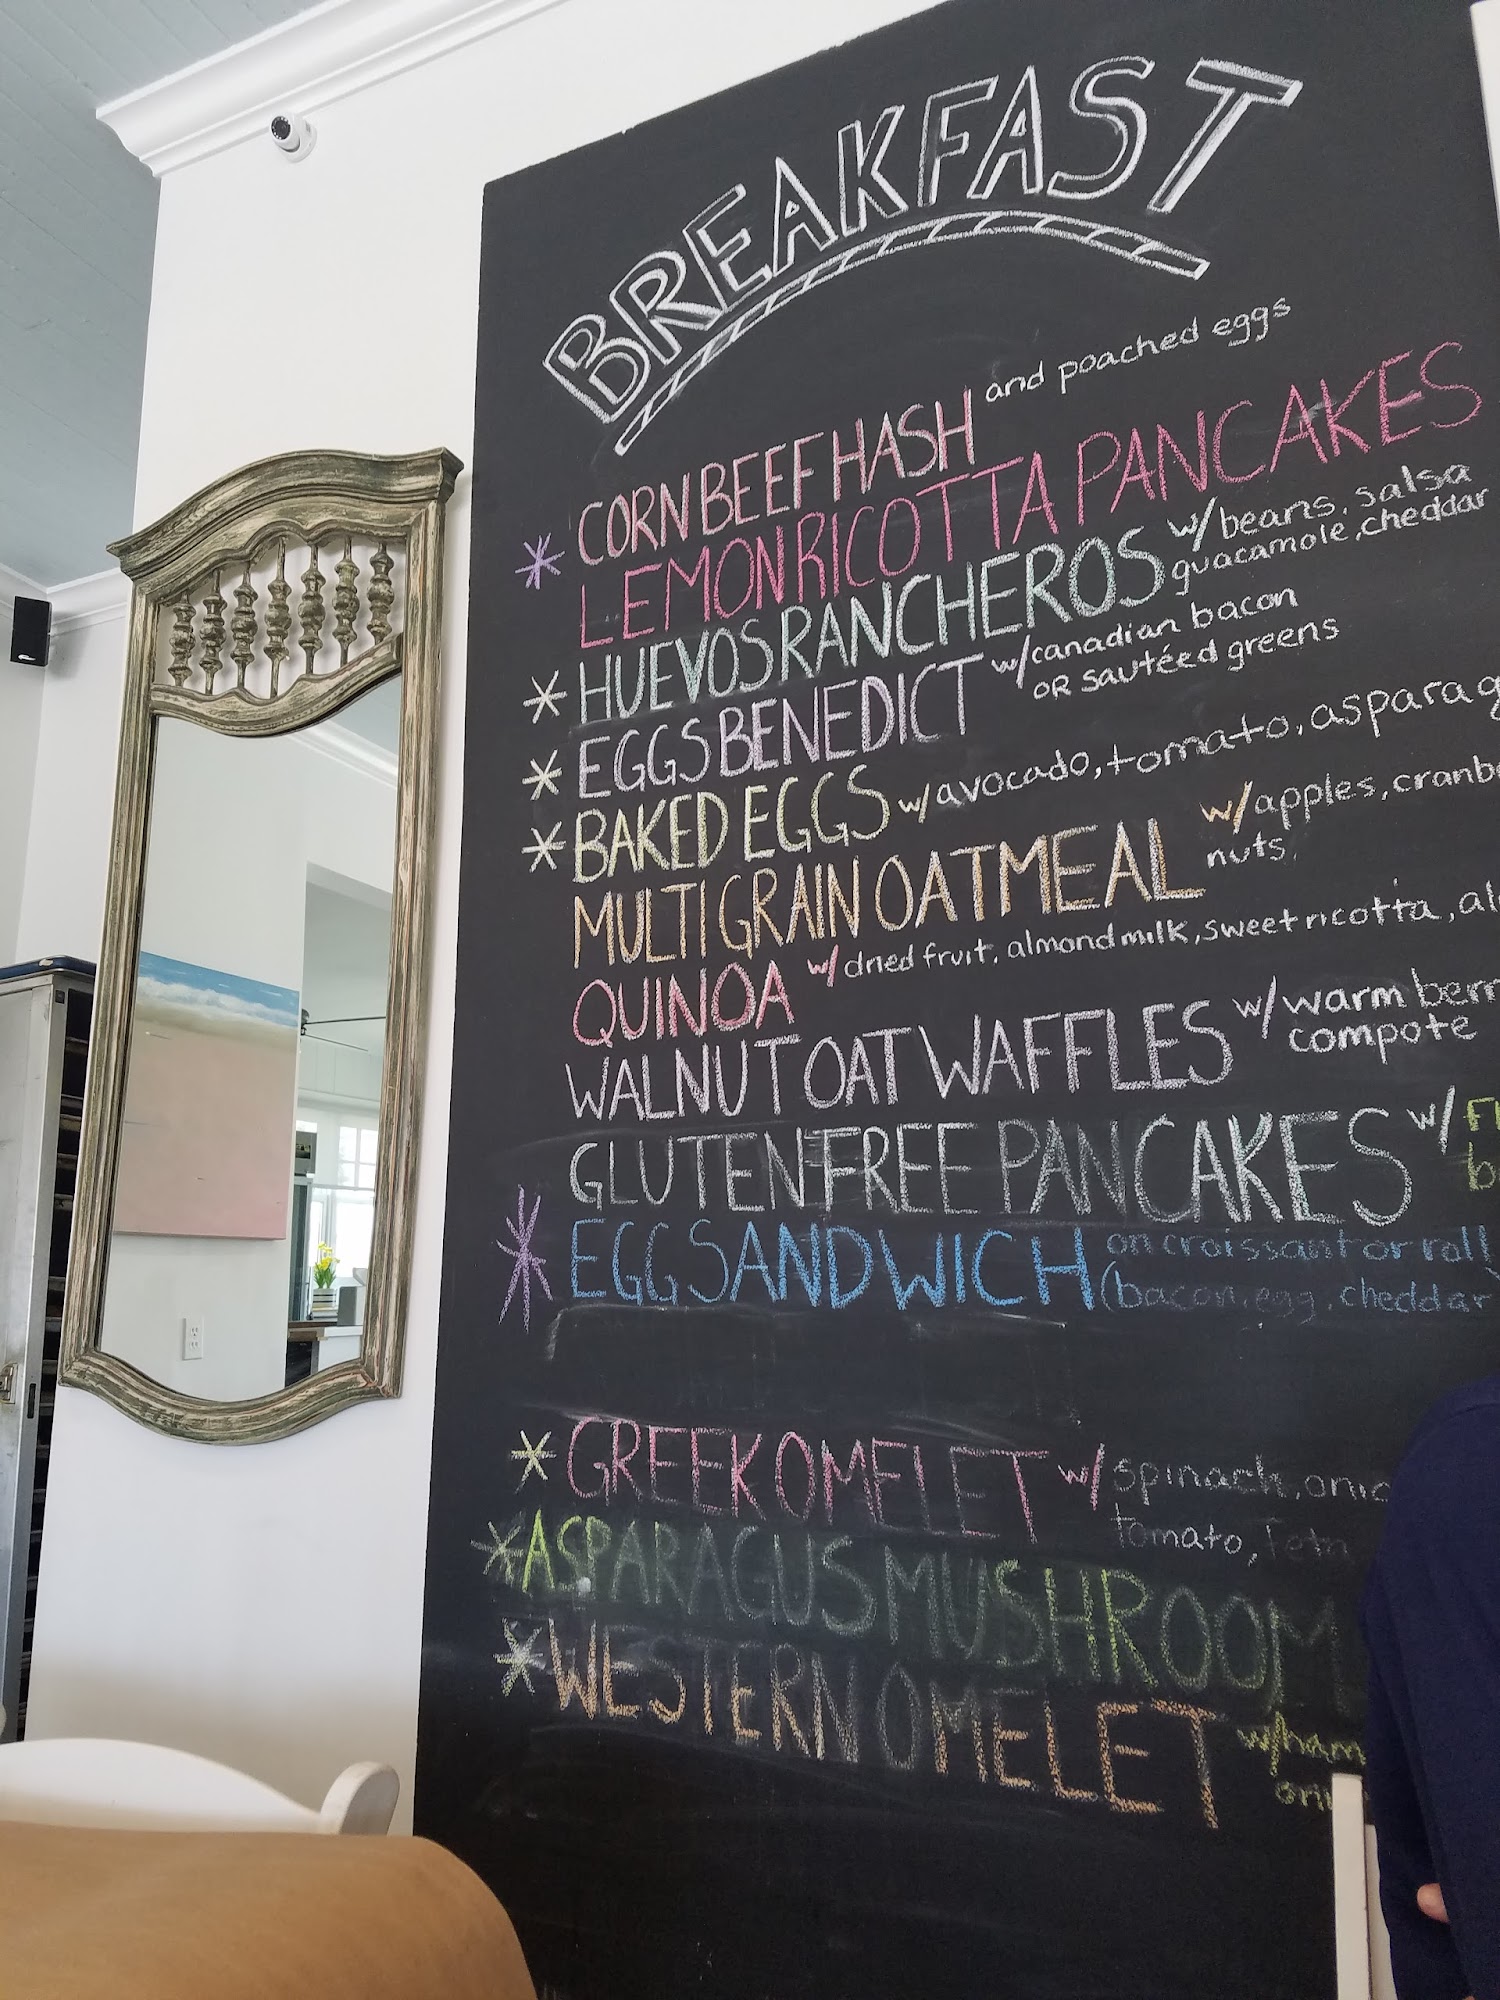 BREAKFAST
* CORN BEEF HASH and poached eggs
LEMON RICOTTA PANCAKES
* HUEVOS RANCHEROS w/ beans, salsa
guacamole, cheddar
* EGGS BENEDICT w/ canadian bacon
OR sautéed greens
* BAKED EGGS w/ avocado, tomato, asparag
MULTIGRAIN OATMEAL w/ apples, cranb
nuts
QUINOA w/ dried fruit, almond milk, sweet ricotta, al
WALNUT OAT WAFFLES w/ warm berr
compote
GLUTEN FREE PANCAKES w/
* EGG SANDWICH on croissant or roll
(bacon, egg, cheddar)
* GREEK OMELET w/ spinach, onio
tomato, Feta
* ASPARAGUS MUSHROOM
* WESTERN OMELET w/ ham
oni